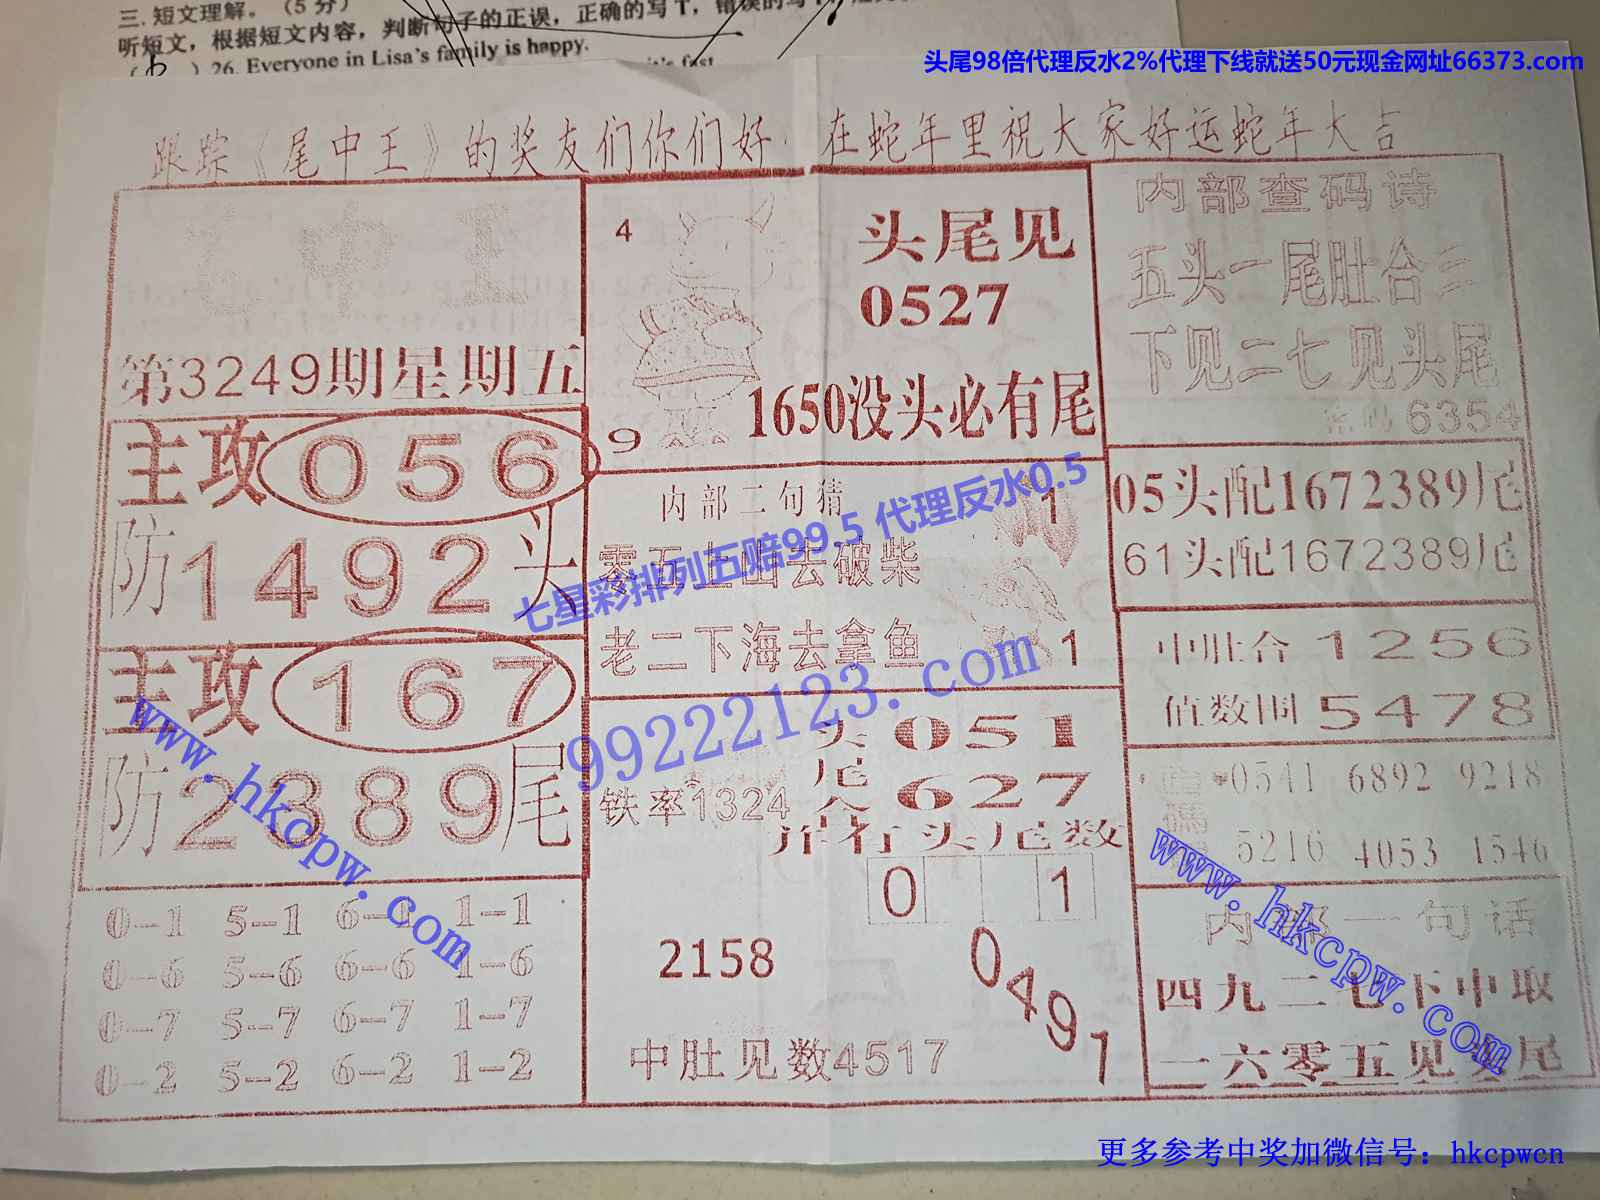 三. 短文理解。（5 分）
听短文，根据短文内容，判断句子的正误，正确的写 T，错误的写
) 26. Everyone in Lisa's family is happy.
头尾98倍代理反水2%代理下线就送50元现金网址66373.com
跟踪《尾中王》的奖友们你们好 在蛇年里祝大家好运蛇年大吉
中王
第3249期星期五
主攻056
防1492头
主攻167
防2389尾
0-1 5-1 6-1 1-1
0-6 5-6 6-6 1-6
0-7 5-7 6-7 1-7
0-2 5-2 6-2 1-2
4
9
头尾见
0527
1650没头必有尾
内部二句猜
零五上山去破柴
1
老二下海去拿鱼
1
头051
尾627
合
铁率1324
并行头尾数
0 1
2158
0491
中肚见数4517
内部查码诗
五头一尾肚合三
下见二七见头尾
密码6354
05头配1672389尾
61头配1672389尾
中肚合1256
值数围5478
0541 6892 9218
5216 4053 1546
内部一句话
四九二七下中取
一六零五见头尾
七星彩排列五赔99.5 代理反水0.5
99222123.com
www.hkcpw.com
www.hkcpw.com
更多参考中奖加微信号：hkcpwcn